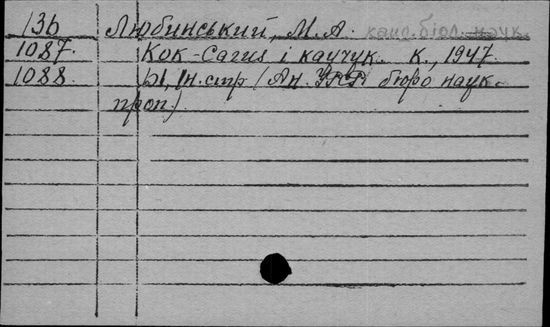 13б Любинський, М. А. канд. біол. наук.
1087 Кок-Сагиз і каучук. К., 1947.
1088 51, 1н. стр (Ан. УРСР бюро наук.
проп.)